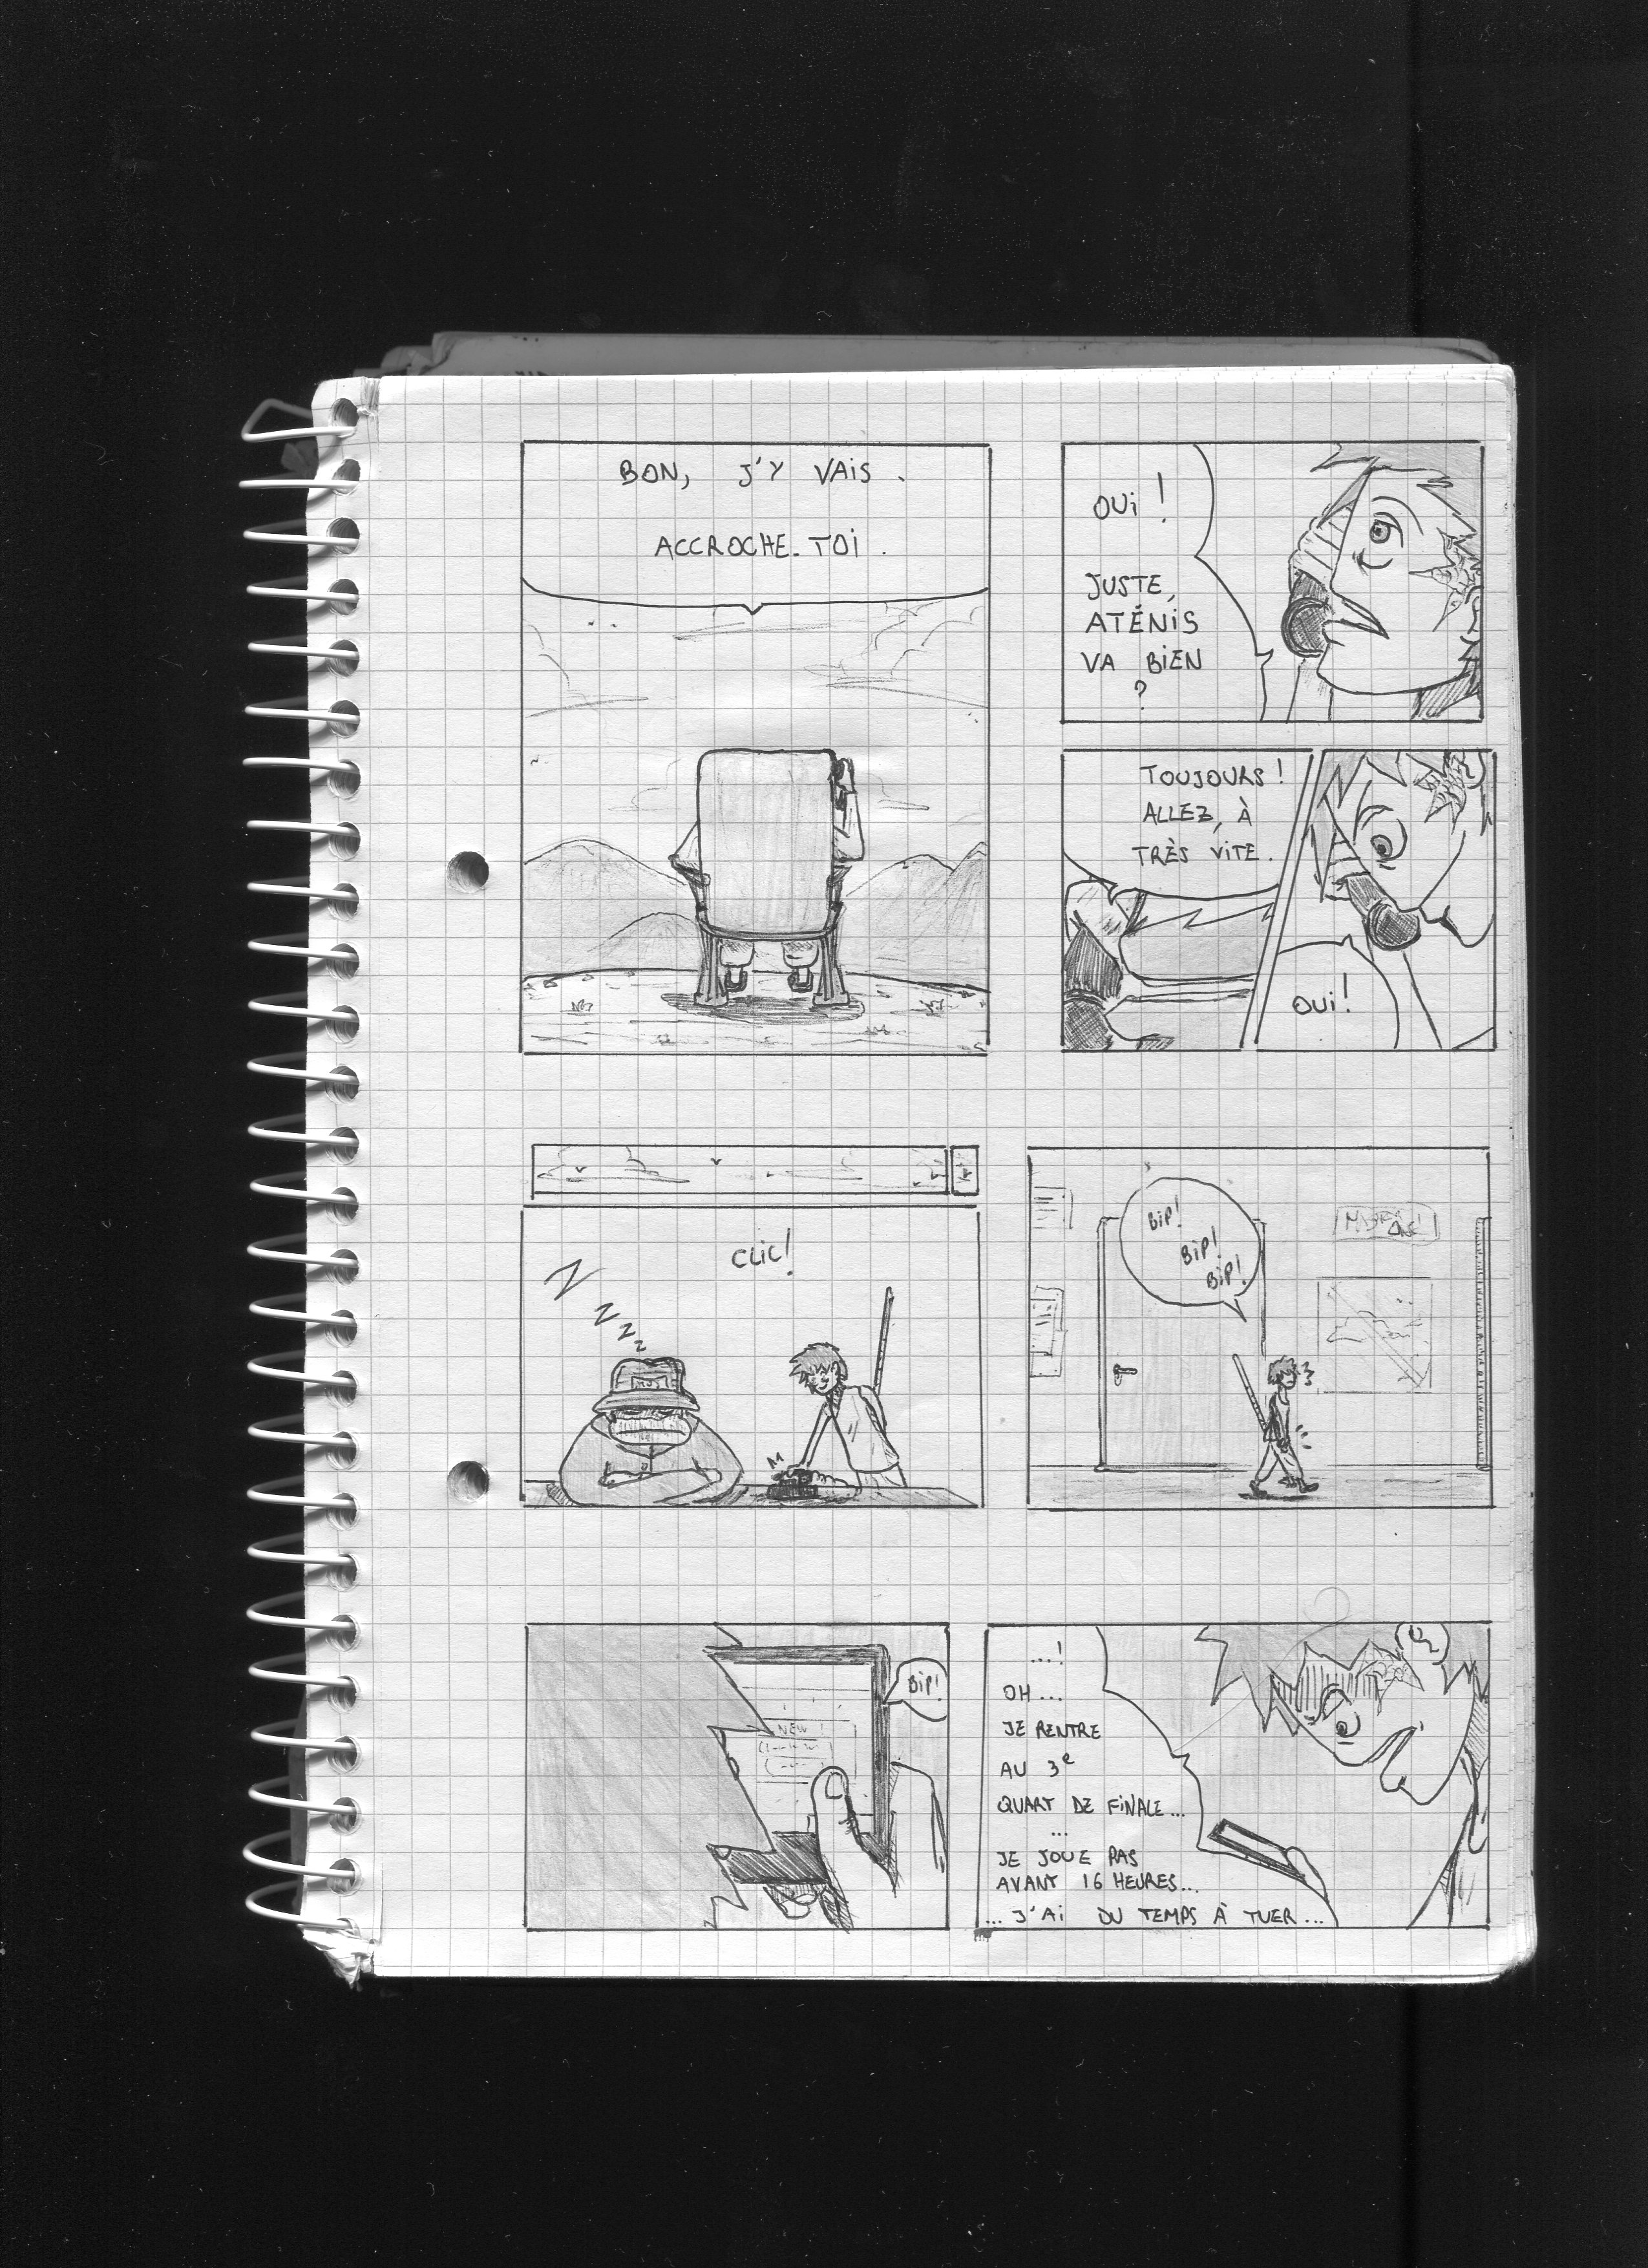 BON, J'Y VAIS.
ACCROCHE-TOI.
OUI !
JUSTE,
ATÉNIS
VA BIEN
?
TOUJOURS !
ALLEZ, À
TRÈS VITE.
OUI !
CLIC !
Z Z Z Z Z
BIP !
BIP !
BIP !
NEW !
BIP !
...!
OH...
JE RENTRE
AU 3e
QUART DE FINALE...
...
JE JOUE PAS
AVANT 16 HEURES...
... J'AI DU TEMPS À TUER...